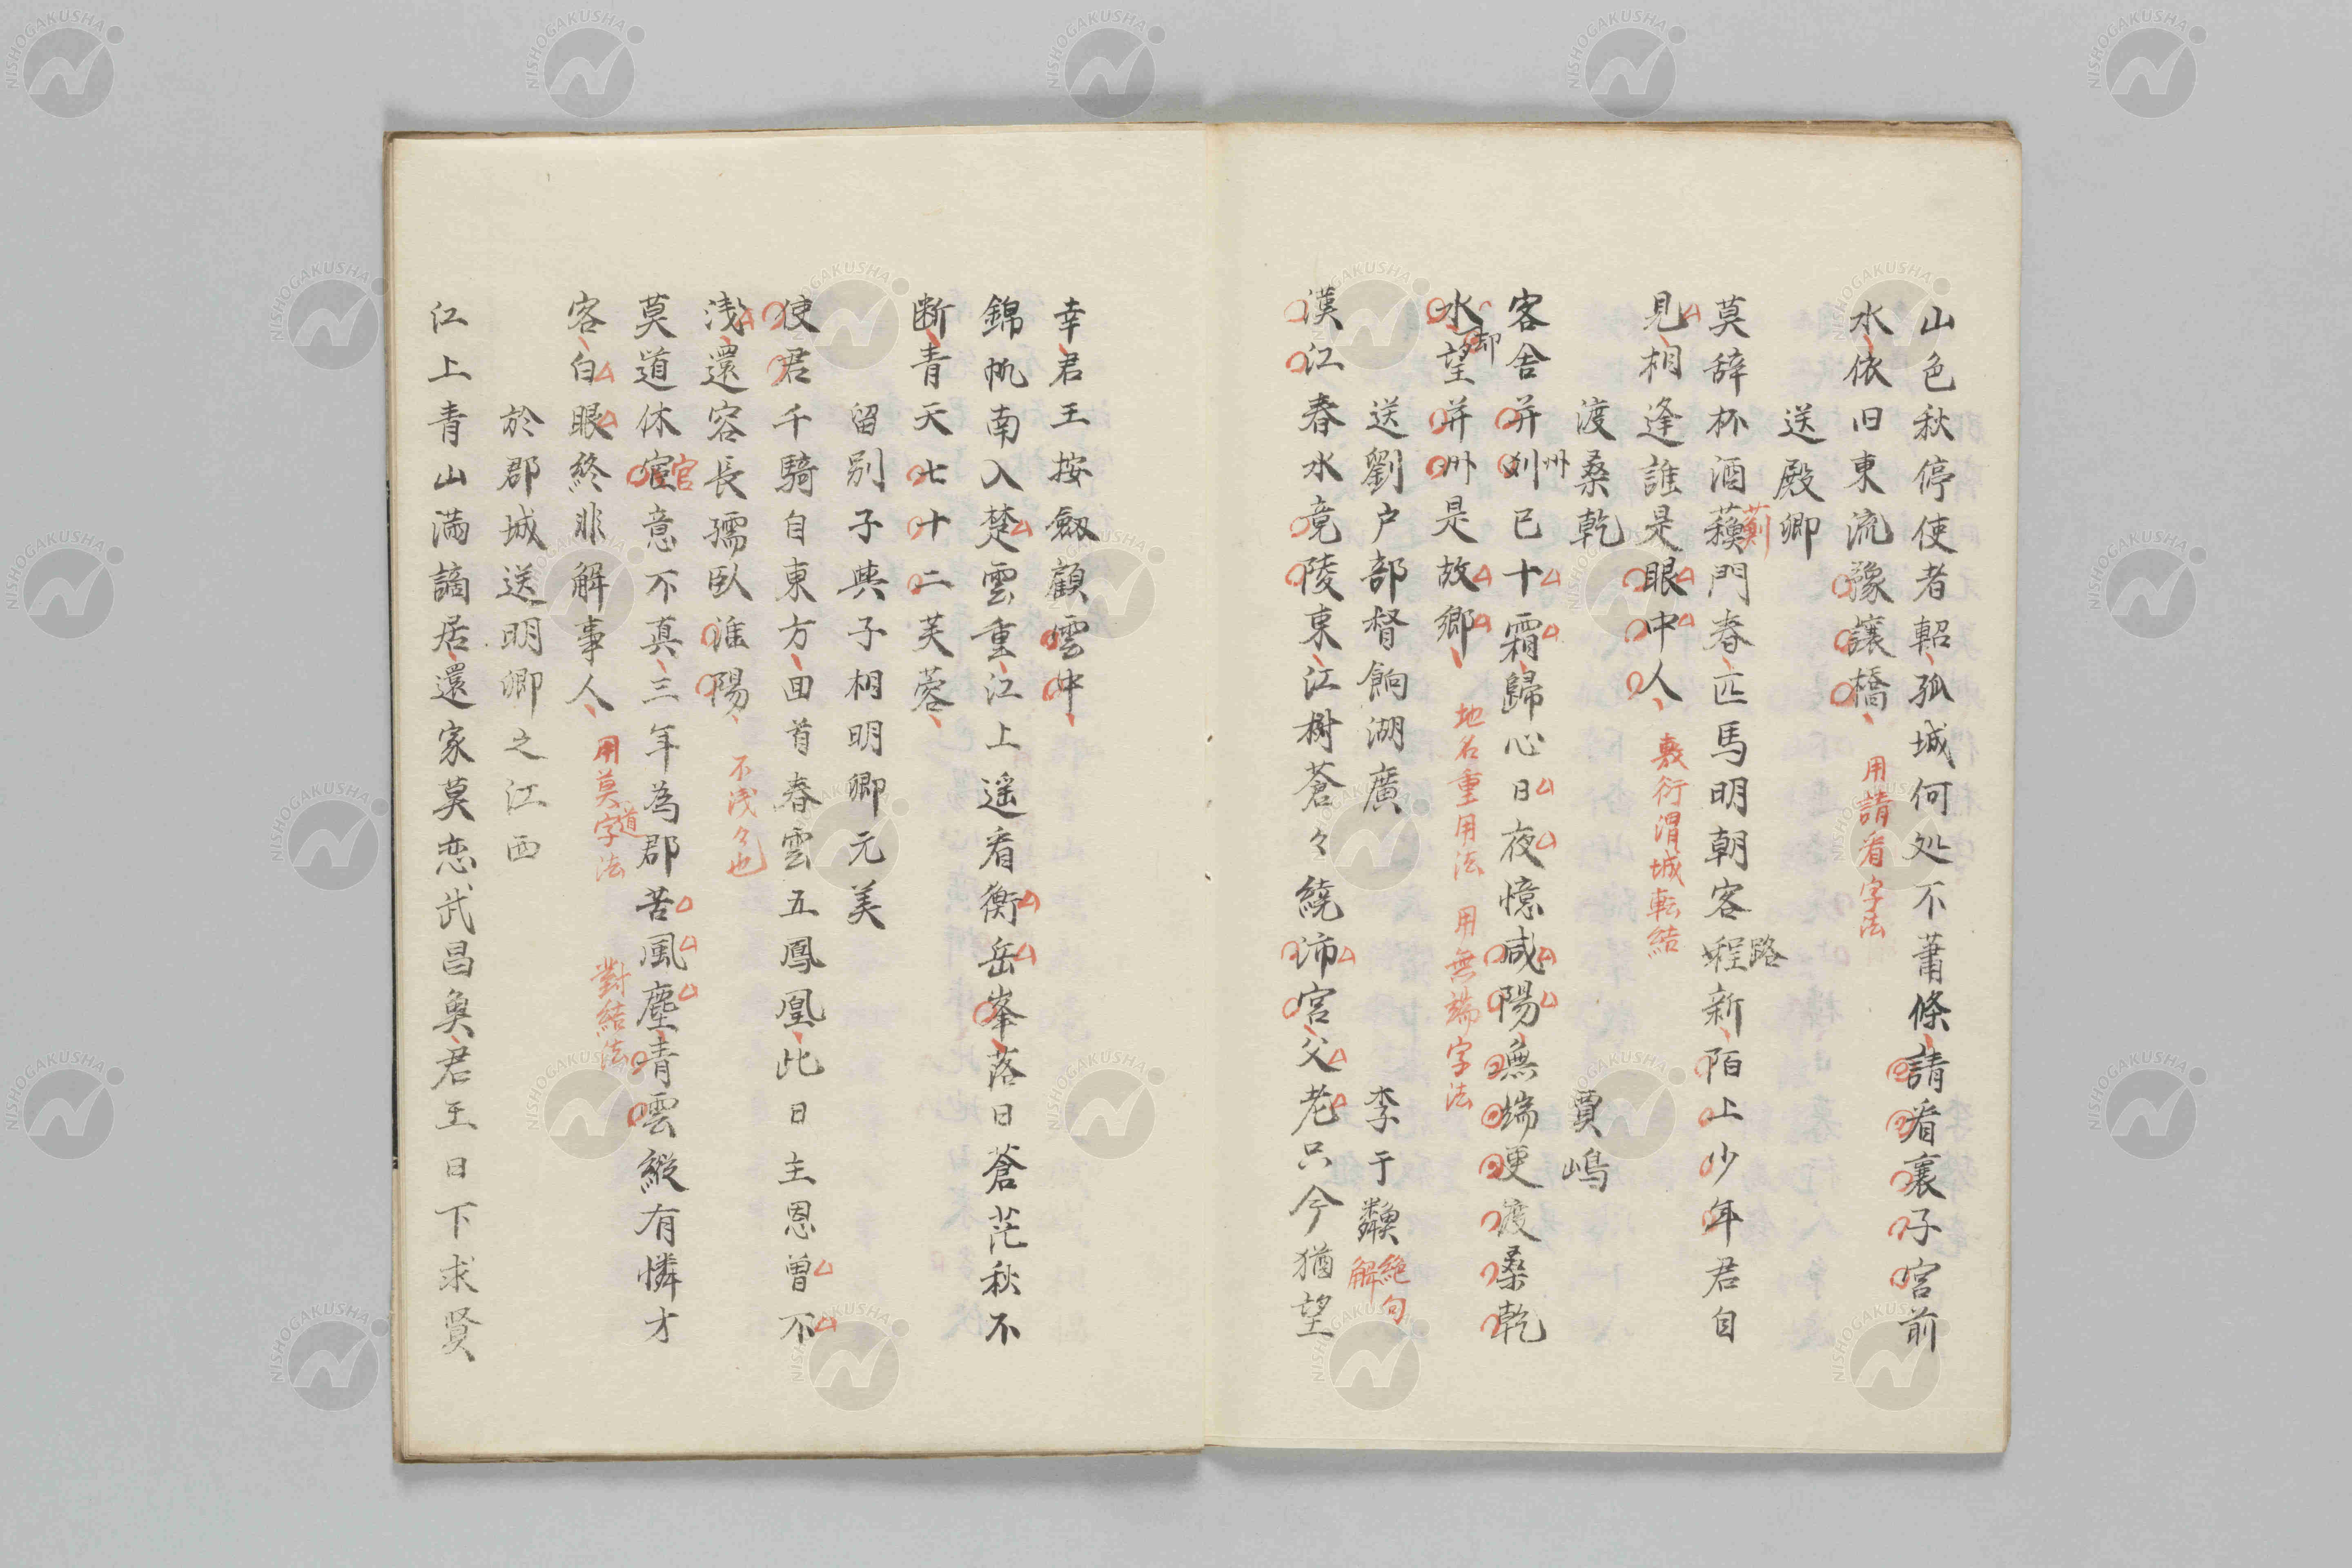 山色秋停使者軺孤城何処不蕭條請看襄子宮前
水依旧東流豫讓橋
用請看字法
送殿卿
莫辞杯酒薊門春匹馬明朝客程新陌上少年君自
薊
路
見相逢誰是眼中人
敷衍渭城転結
渡桑乾 賈嶋
客舎并州已十霜歸心日夜憶咸陽無端更渡桑乾
州
水望并州是故郷
却
地名重用法 用無端字法
送劉戸部督餉湖廣 李于鱗
絶句
解
漢江春水竟陵東江樹蒼々繞沛宮父老只今猶望
幸君王按劔顧雲中
錦帆南入楚雲重江上遥看衡岳峯落日蒼茫秋不
断青天七十二芙蓉
留別子與子相明卿元美
使君千騎自東方回首春雲五鳳凰此日主恩曽不
浅還容長孺臥淮陽
不浅々也
莫道休官意不真三年為郡苦風塵青雲縱有憐才
官
客白眼終非解事人
用莫道字法 對結法
於郡城送明卿之江西
江上青山満謫居還家莫恋武昌魚君王日下求賢